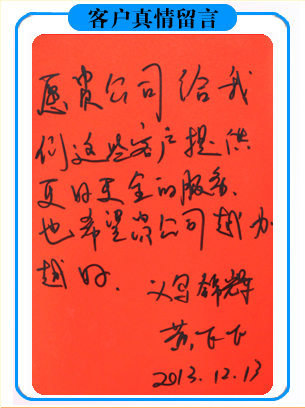 客户真情留言
愿贵公司给我
们这些客户提供
更好更全的服务.
也希望贵公司越办
越好.
义乌锦辉
黄飞飞
2013.12.13